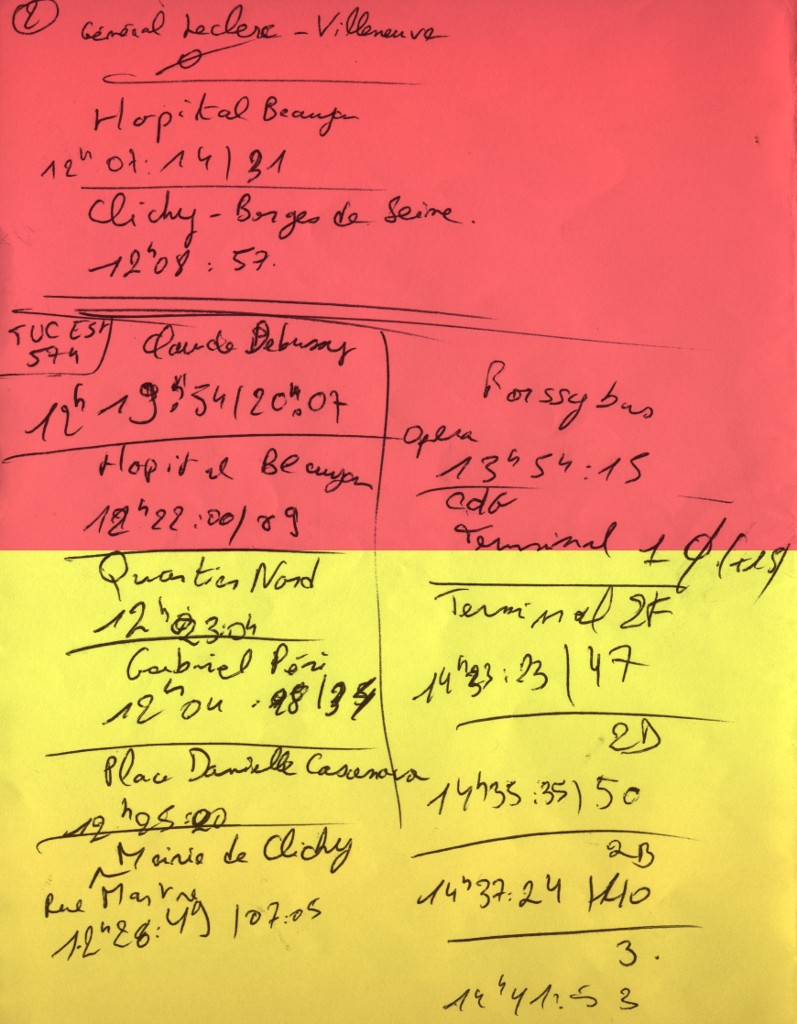 2
Général Leclerc - Villeneuve
Ø
Hopital Beaujon
12h 07:14 | 31
Clichy - Berges de Seine.
12h08 : 57.
TUC EST
574
Claude Debussy
12h 19:54 | 20:07
Hopital Beaujon
12h22:00 | 09
Quartier Nord
12h 23:04
Gabriel Péri
12h 04
Place Danielle Casanova
12h25:20
Mairie de Clichy
Rue Martre
12h28:49 | 07:05
Roissybus
Opera
13h54:15
CDG
Terminal 1 Ø (+15)
Terminal 2F
14h33:23 | 47
2D
14h35:35 | 50
2B
14h37:24 | 40
3.
14h41:53